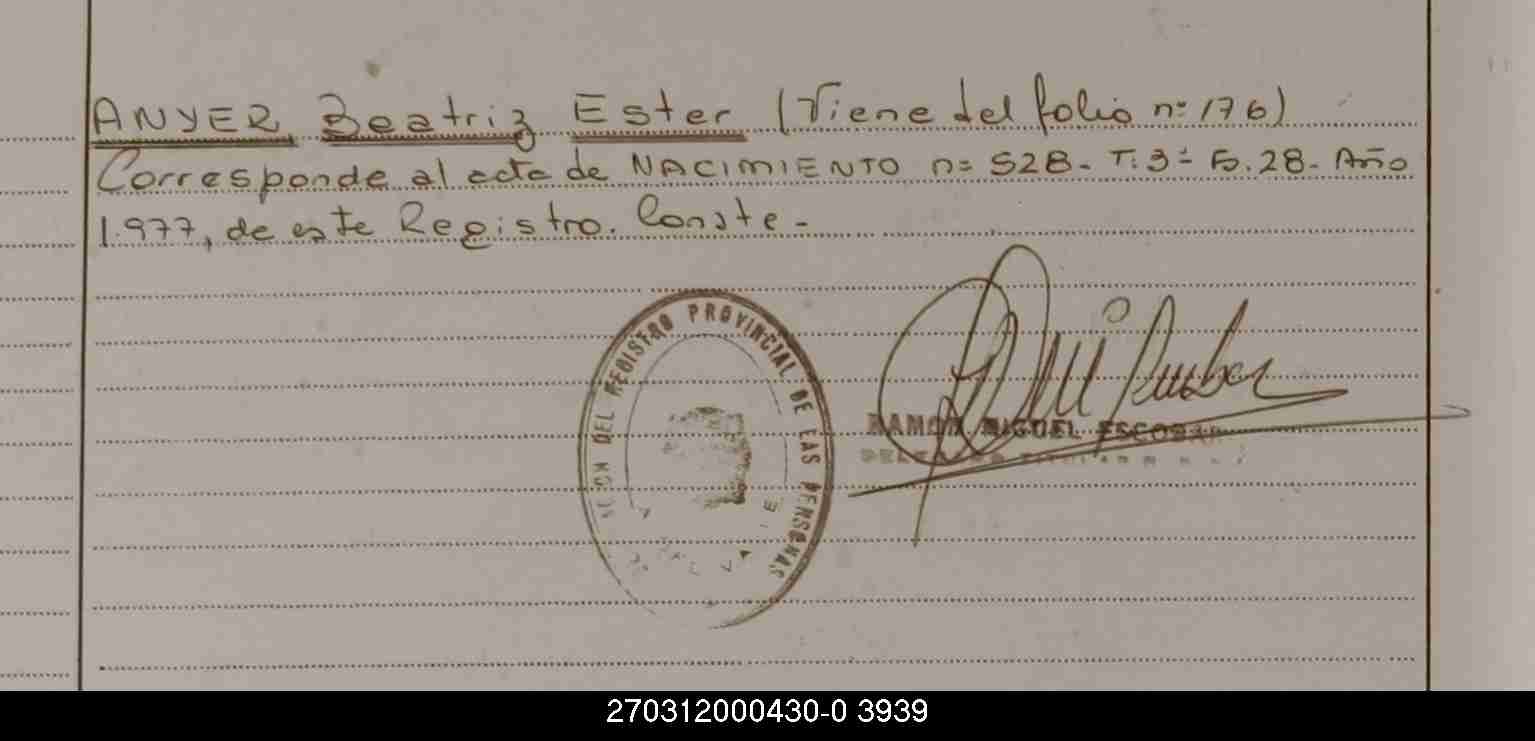 ANYER Beatriz Ester (Viene del folio nº 176)
Corresponde al acta de NACIMIENTO nº 528- T: 3º- Fº. 28- Año
1.977, de este Registro. Conste-
DEL REGISTRO PROVINCIAL DE LAS PERSONAS
RAMON MIGUEL ESCOBAR
270312000430-0 3939